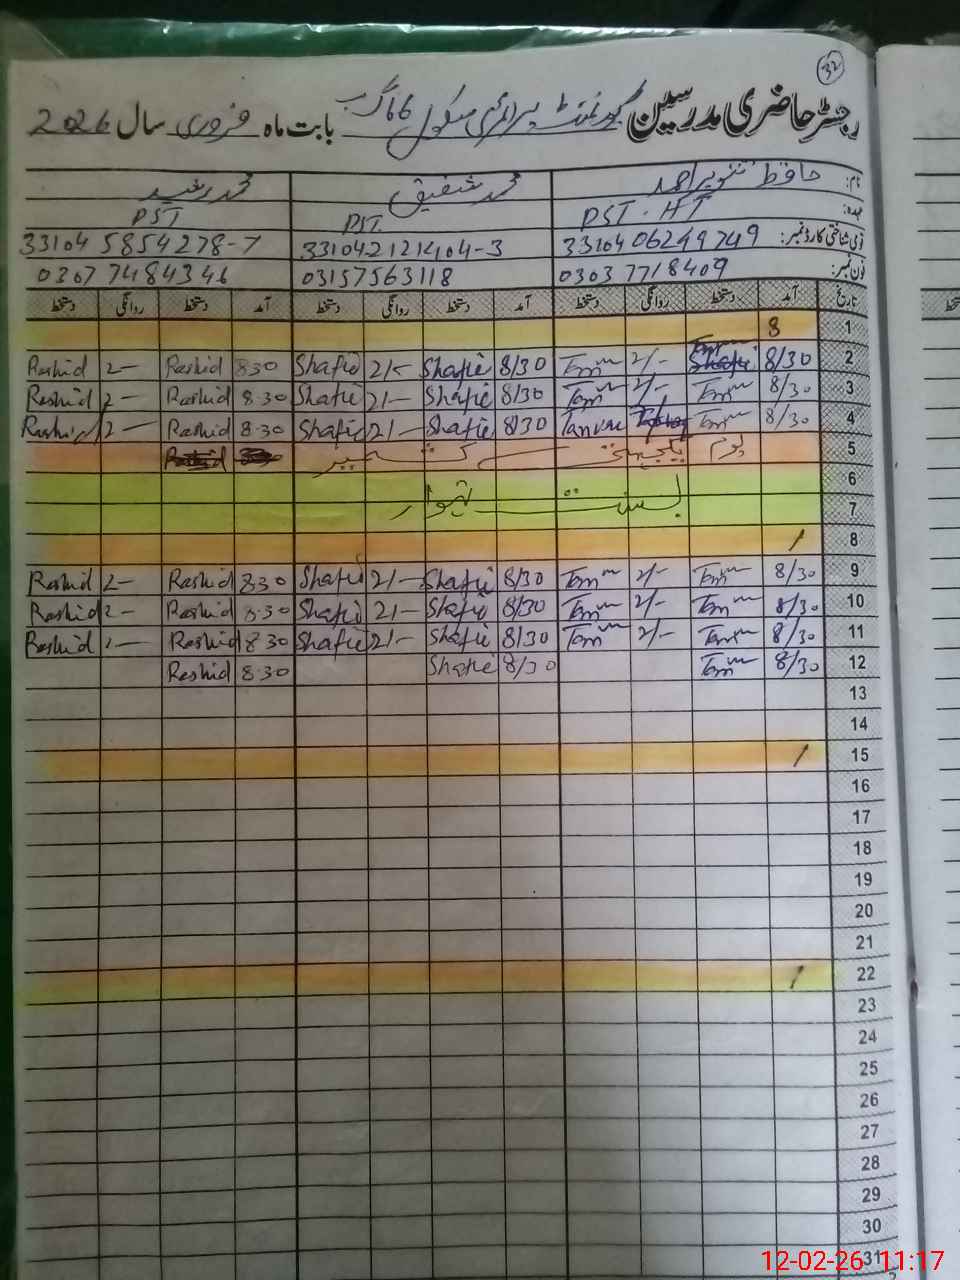 32
رجسٹر حاضری مدرسین گورنمنٹ پرائمری سکول 76 گ ب بابت ماہ فروری سال 2026
نام: حافظ تنویر احمد محمد شفیق محمد رشید
عہدہ: PST-HT PST PST
قومی شناختی کارڈ نمبر: 33104 06249749 331042121404-3 33104 5854278-7
فون نمبر: 0303 7718409 03157563118 0307 7484346
تاریخ آمد دستخط روانگی دستخط آمد دستخط روانگی دستخط آمد دستخط روانگی دستخط
1 8
2 8/30 2/- 8/30 Shafie 2/- Shafie 8 30 Rashid 2- Rashid
3 8/30 2/- 8/30 Shafie 2/- Shafie 8.30 Rashid 2- Rashid
4 8/30 Tanvir 8/30 Shafie 2/- Shafie 8.30 Rashid 2- Rashid
5 یوم یکجہتی کشمیر
6 بسنت تہوار
7
8
9 8/30 2/- 8/30 Shafie 2/- Shafie 8.30 Rashid 2- Rashid
10 8/30 2/- 8/30 Shafie 2/- Shafie 8.30 Rashid 2- Rashid
11 8/30 2/- 8/30 Shafie 2/- Shafie 8 30 Rashid Rashid
12 8/30 8/30 Shafie 8.30 Rashid
13
14
15
16
17
18
19
20
21
22
23
24
25
26
27
28
29
30
31
12-02-26 11:17